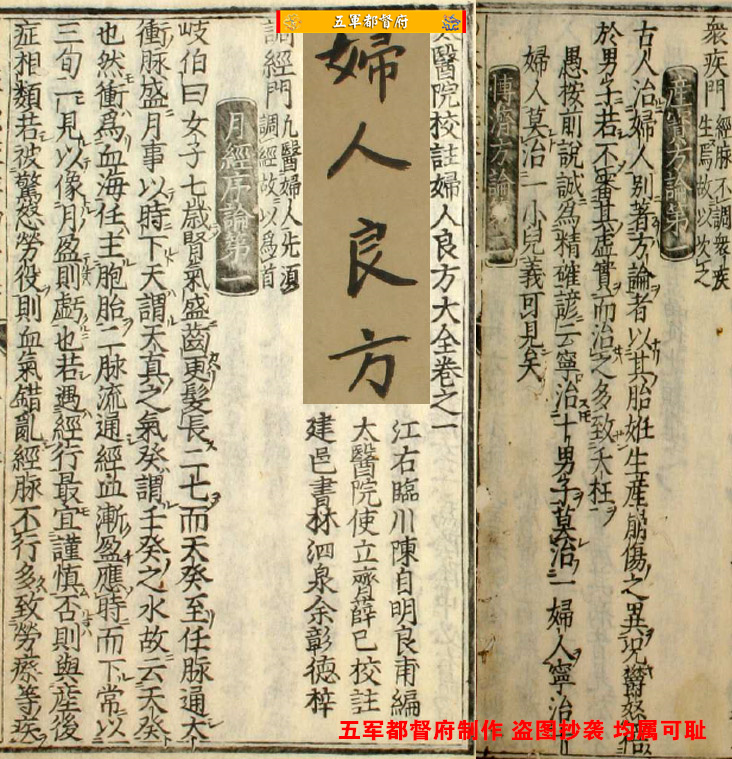 五軍都督府
婦人良方
太醫院校註婦人良方大全卷之一
江右臨川陳自明良甫編
太醫院使立齋薛己校註
建邑書林泗泉余彰德梓
調經門
九醫婦人先須
調經故以爲首
月經序論第一
岐伯曰女子七歲腎氣盛齒更髮長二七而天癸至任脉通太
衝脉盛月事以時下天謂天真之氣癸謂壬癸之水故云天癸
也然衝爲血海任主胞胎二脉流通經血漸盈應時而下常以
三旬一見以像月盈則虧也若遇經行最宜謹慎否則與産後
症相類若被驚怒勞役則血氣錯亂經脉不行多致勞瘵等疾
衆疾門
經脉不調衆疾
生焉故以次之
産寶方論第一
古人治婦人別著方論者以其胎妊生産崩傷之異况欝怒倍
於男子若不審其虛實而治之多致夭枉
愚按前說誠爲精確諺云寧治十男子莫治一婦人寧治十
婦人莫治一小兒義可見矣
博濟方論
五军都督府制作 盗图抄袭 均属可耻